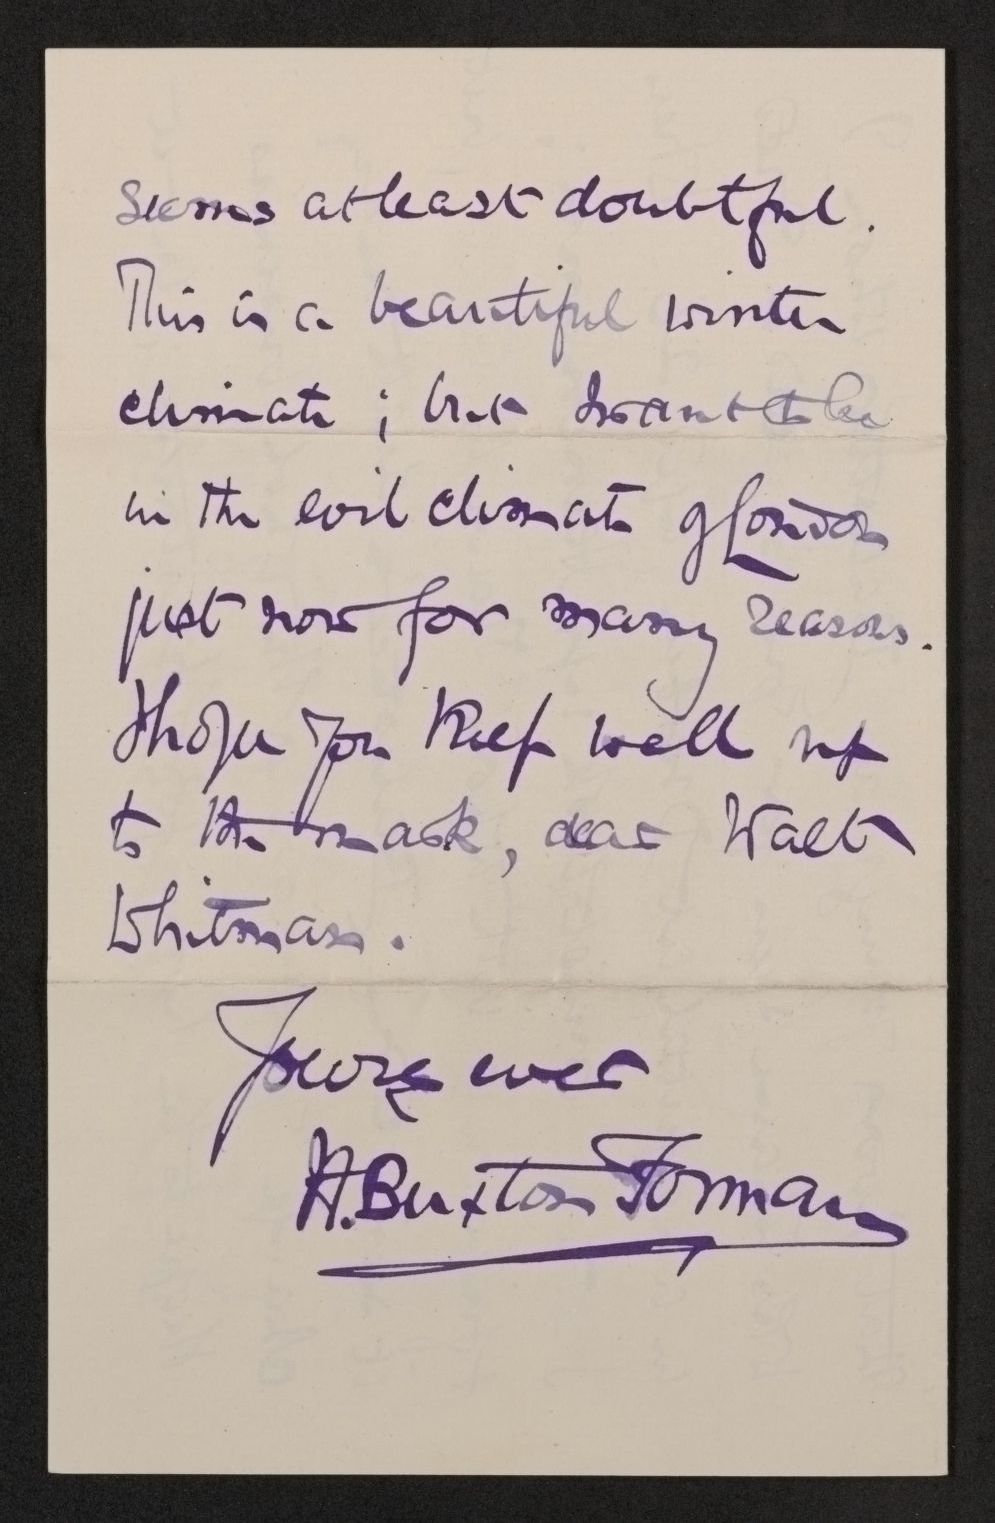 seems at least doubtful.
This is a beautiful winter
climate; but I want to be
in the evil climate of London
just now for many reasons.
I hope you keep well up
to the mark, dear Walt
Whitman.
Yours ever
H. Buxton Forman